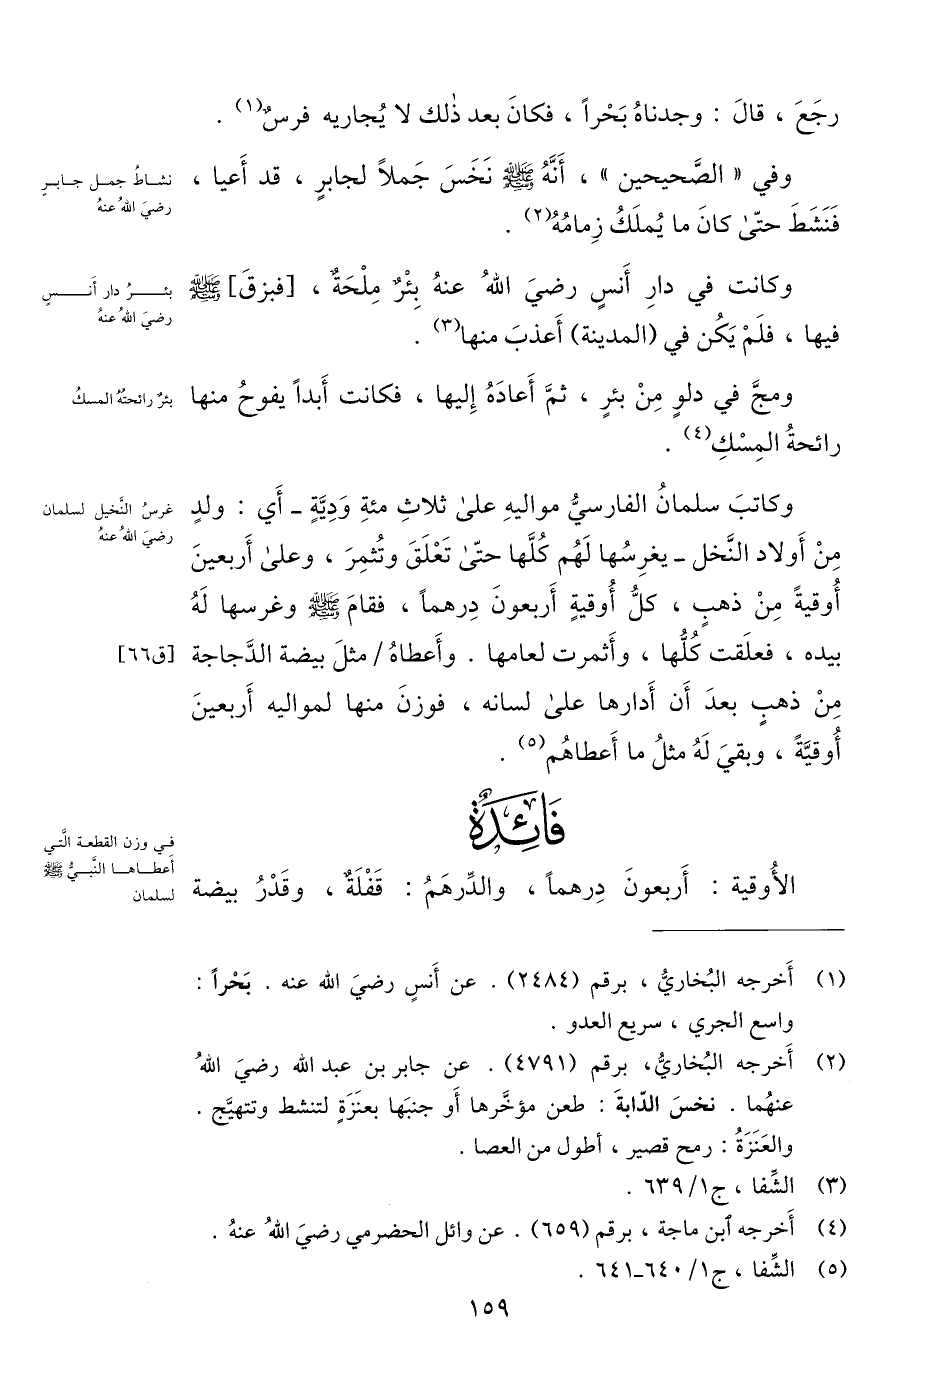 رجَعَ ، قالَ : وجدناهُ بَحْراً ، فكانَ بعد ذٰلك لا يُجاريه فرسٌ(١) .
وفي « الصَّحيحين » ، أَنَّهُ ﷺ نَخَسَ جَملاً لجابرٍ ، قد أَعيا ،
نشاطُ جمل جابرٍ
رضيَ اللهُ عنهُ
فَنَشَطَ حتّىٰ كانَ ما يُملَكُ زِمامُهُ(٢) .
وكانت في دارِ أَنسٍ رضيَ اللهُ عنهُ بِئْرٌ مِلْحَةٌ ، [فبزقَ] ﷺ
بئرُ دار أنسٍ
رضيَ اللهُ عنهُ
فيها ، فلَمْ يَكُن في (المدينة) أَعذبَ منها(٣) .
ومجَّ في دلوٍ مِنْ بئرٍ ، ثمَّ أَعادَهُ إِليها ، فكانت أَبداً يفوحُ منها
بئرٌ رائحتُهُ المسكُ
رائحةُ المِسْكِ(٤) .
وكاتبَ سلمانُ الفارسيُّ مواليهِ علىٰ ثلاثِ مئةِ وَدِيَّةٍ ـ أَي : ولدٍ
غرسُ النَّخيل لسلمان
رضيَ اللهُ عنهُ
مِنْ أَولاد النَّخل ـ يغرِسُها لَهُم كُلَّها حتّىٰ تَعْلَقَ وتُثمِرَ ، وعلىٰ أَربعينَ
أُوقيةً مِنْ ذهبٍ ، كلُّ أُوقيةٍ أَربعونَ دِرهماً ، فقامَ ﷺ وغرسها لَهُ
بيده ، فعلَقت كُلُّها ، وأَثمرت لعامها . وأَعطاهُ/ مثلَ بيضة الدَّجاجة
[ق٦٦]
مِنْ ذهبٍ بعدَ أَن أَدارها علىٰ لسانه ، فوزنَ منها لمواليه أَربعينَ
أُوقيَّةً ، وبقيَ لَهُ مثلُ ما أَعطاهُم(٥) .
فَائِدَةٌ
في وزن القطعة الَّتي
أَعطاها النَّبيُّ ﷺ
لسلمان
الأُوقية : أَربعونَ دِرهماً ، والدِّرهَمُ : قَفْلَةٌ ، وقَدْرُ بيضة
(١) أَخرجه البُخاريُّ ، برقم (٢٤٨٤) . عن أَنسٍ رضيَ الله عنه . بَحْراً :
واسع الجري ، سريع العدو .
(٢) أَخرجه البُخاريُّ، برقم (٤٧٩١) . عن جابر بن عبد الله رضيَ اللهُ
عنهُما . نخسَ الدّابةَ : طعن مؤخَّرها أو جنبَها بعنَزَةٍ لتنشط وتتهيَّج .
والعَنَزَةُ : رمح قصير ، أطول من العصا .
(٣) الشِّفا ، ج١/ ٦٣٩ .
(٤) أَخرجه ٱبن ماجة ، برقم (٦٥٩) . عن وائل الحضرمي رضيَ اللهُ عنهُ .
(٥) الشِّفا ، ج١/ ٦٤٠ـ٦٤١ .
١٥٩